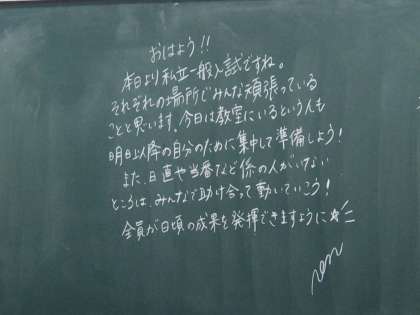 おはよう!!
本日より私立一般入試ですね。
それぞれの場所でみんな頑張っている
ことと思います。今日は教室にいるという人も
明日以降の自分のために集中して準備しよう!
また、日直や当番など係の人がいない
ところは、みんなで助け合って動いていこう!
全員が日頃の成果を発揮できますように☆